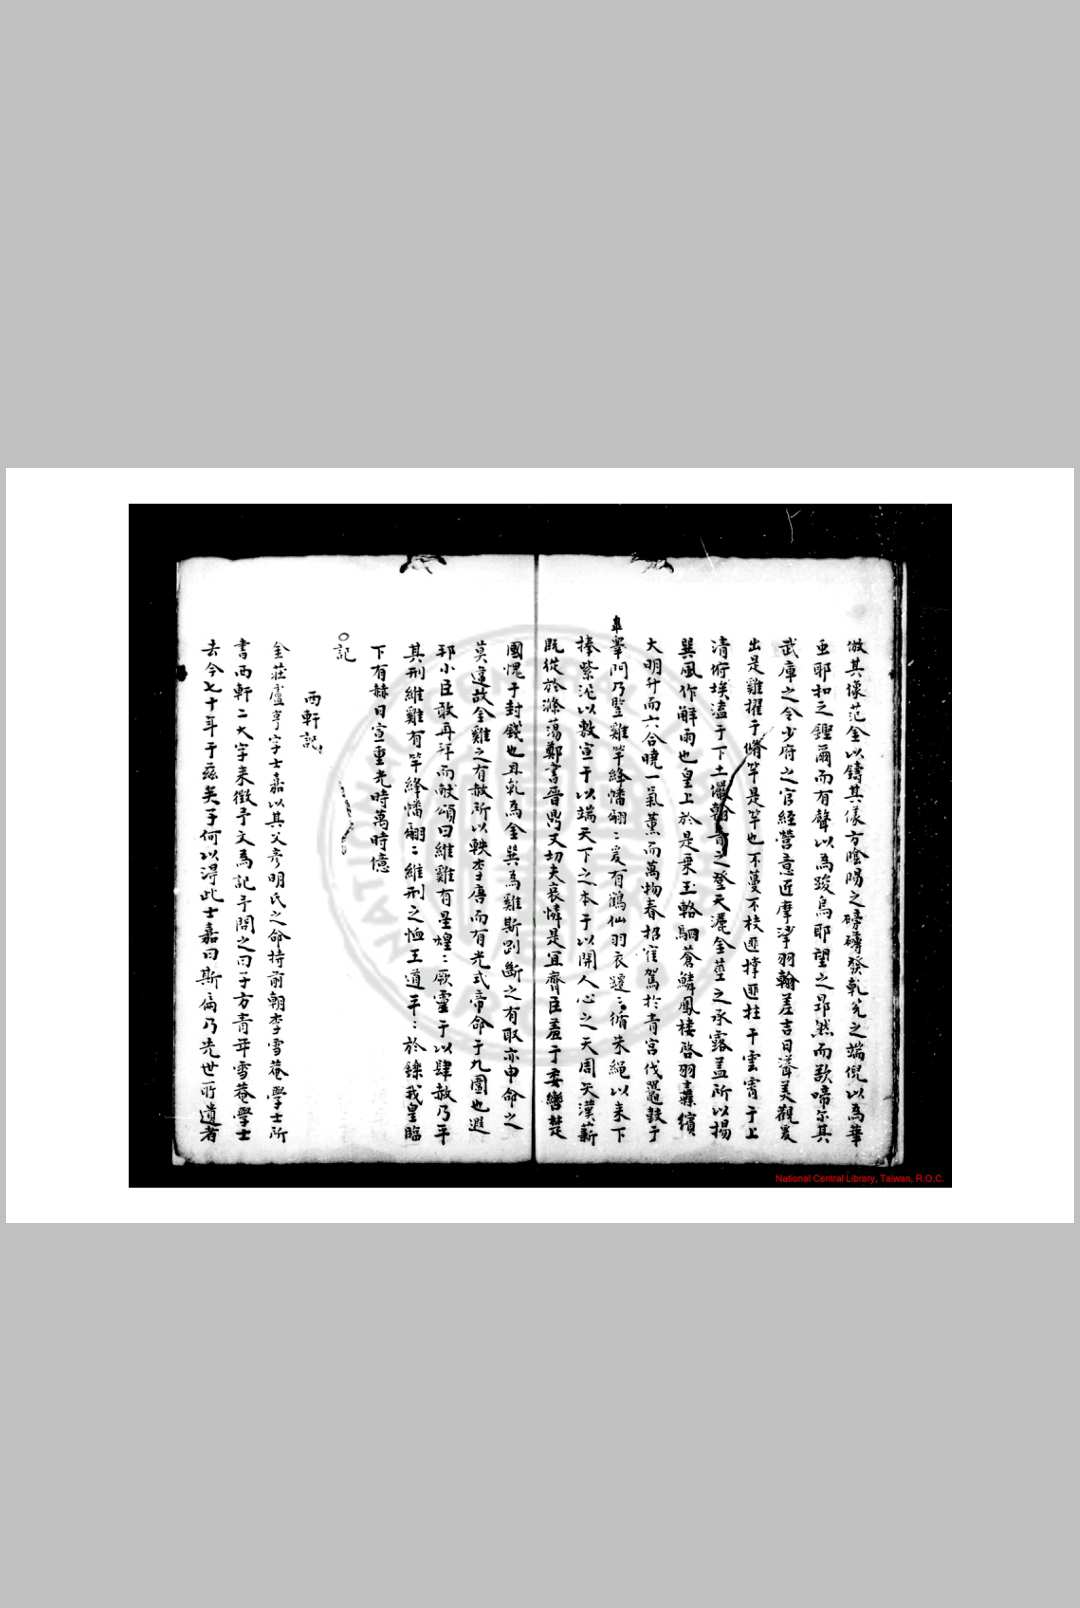 倣其壤范金以鑄其儀方陰陽之磅礴發乾兌之端倪以為華
虫耶和之鏗爾而有聲以為踆烏耶望之昂然而歌啼尔其
武庫之令少府之官經營意近摩挲羽翰差吉日潔美觀爰
出是雞擢于脩竿是竿也不蔓不枝匪撑匪柱干雲霄于上
清埓埃壒于下土攨翰音之登天灑金莖之承露盖所以揚
巽風作觧雨也皇上於是乗玉輅駟蒼鱗鳳樓啓羽纛繽
大明升而六合曉一氣薰而萬物春招隺駕於青宮伐鼉鼓于
皐罼門乃竪雞竿絳幡翩〻爰有鶴仙羽衣躚〻循朱繩以来下
捧紫泥以敷宣于以端天下之本于以開人心之天周矢漢薪
既從於滌蕩鄭書晉鼎又切夫哀憐是宜齊臣羞于委轡楚
國愧于封錢也且乾為金巽為雞斯剛斷之有取亦申命之
莫違故金雞之有赦所以軼李唐而有光式帝命于九圍也遐
邦小臣敢再拜而献頌曰維雞有星煌〻厥靈于以肆赦乃平
其刑維雞有竿絳幡翩〻維刑之恤王道平〻於鑠我皇臨
下有赫日宣重光時萬時億
○記
西軒記
金莊盧亨字士嘉以其父彦明氏之命持前朝李雪菴學士所
書西軒二大字来徵予文為記予問之曰子方青年雪菴學士
去今七十年于兹矣子何以淂此士嘉曰斯扁乃先世所遺者
National Central Library, Taiwan, R.O.C.